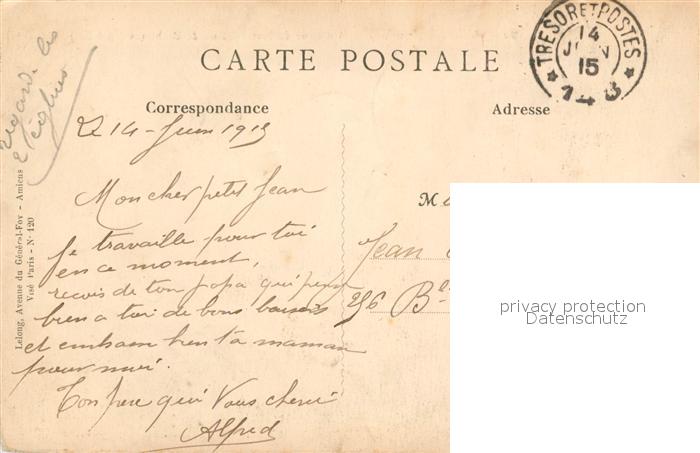 CARTE POSTALE
TRESOR ET POSTES
14
JUIN
15
Correspondance
Adresse
14 - Juin 1915
Mon cher petit Jean
Je travaille pour toi
en ce moment,
recois de ton papa qui pense
bien a toi de bons baisers
et embrasse bien ta maman
pour moi.
Ton pere qui Vous cherit
Alfred
M
Jean
Bd
regarde les
églises
Lelong, Avenue du Général-Foy - Amiens
Visé Paris - N° 120
privacy protection
Datenschutz